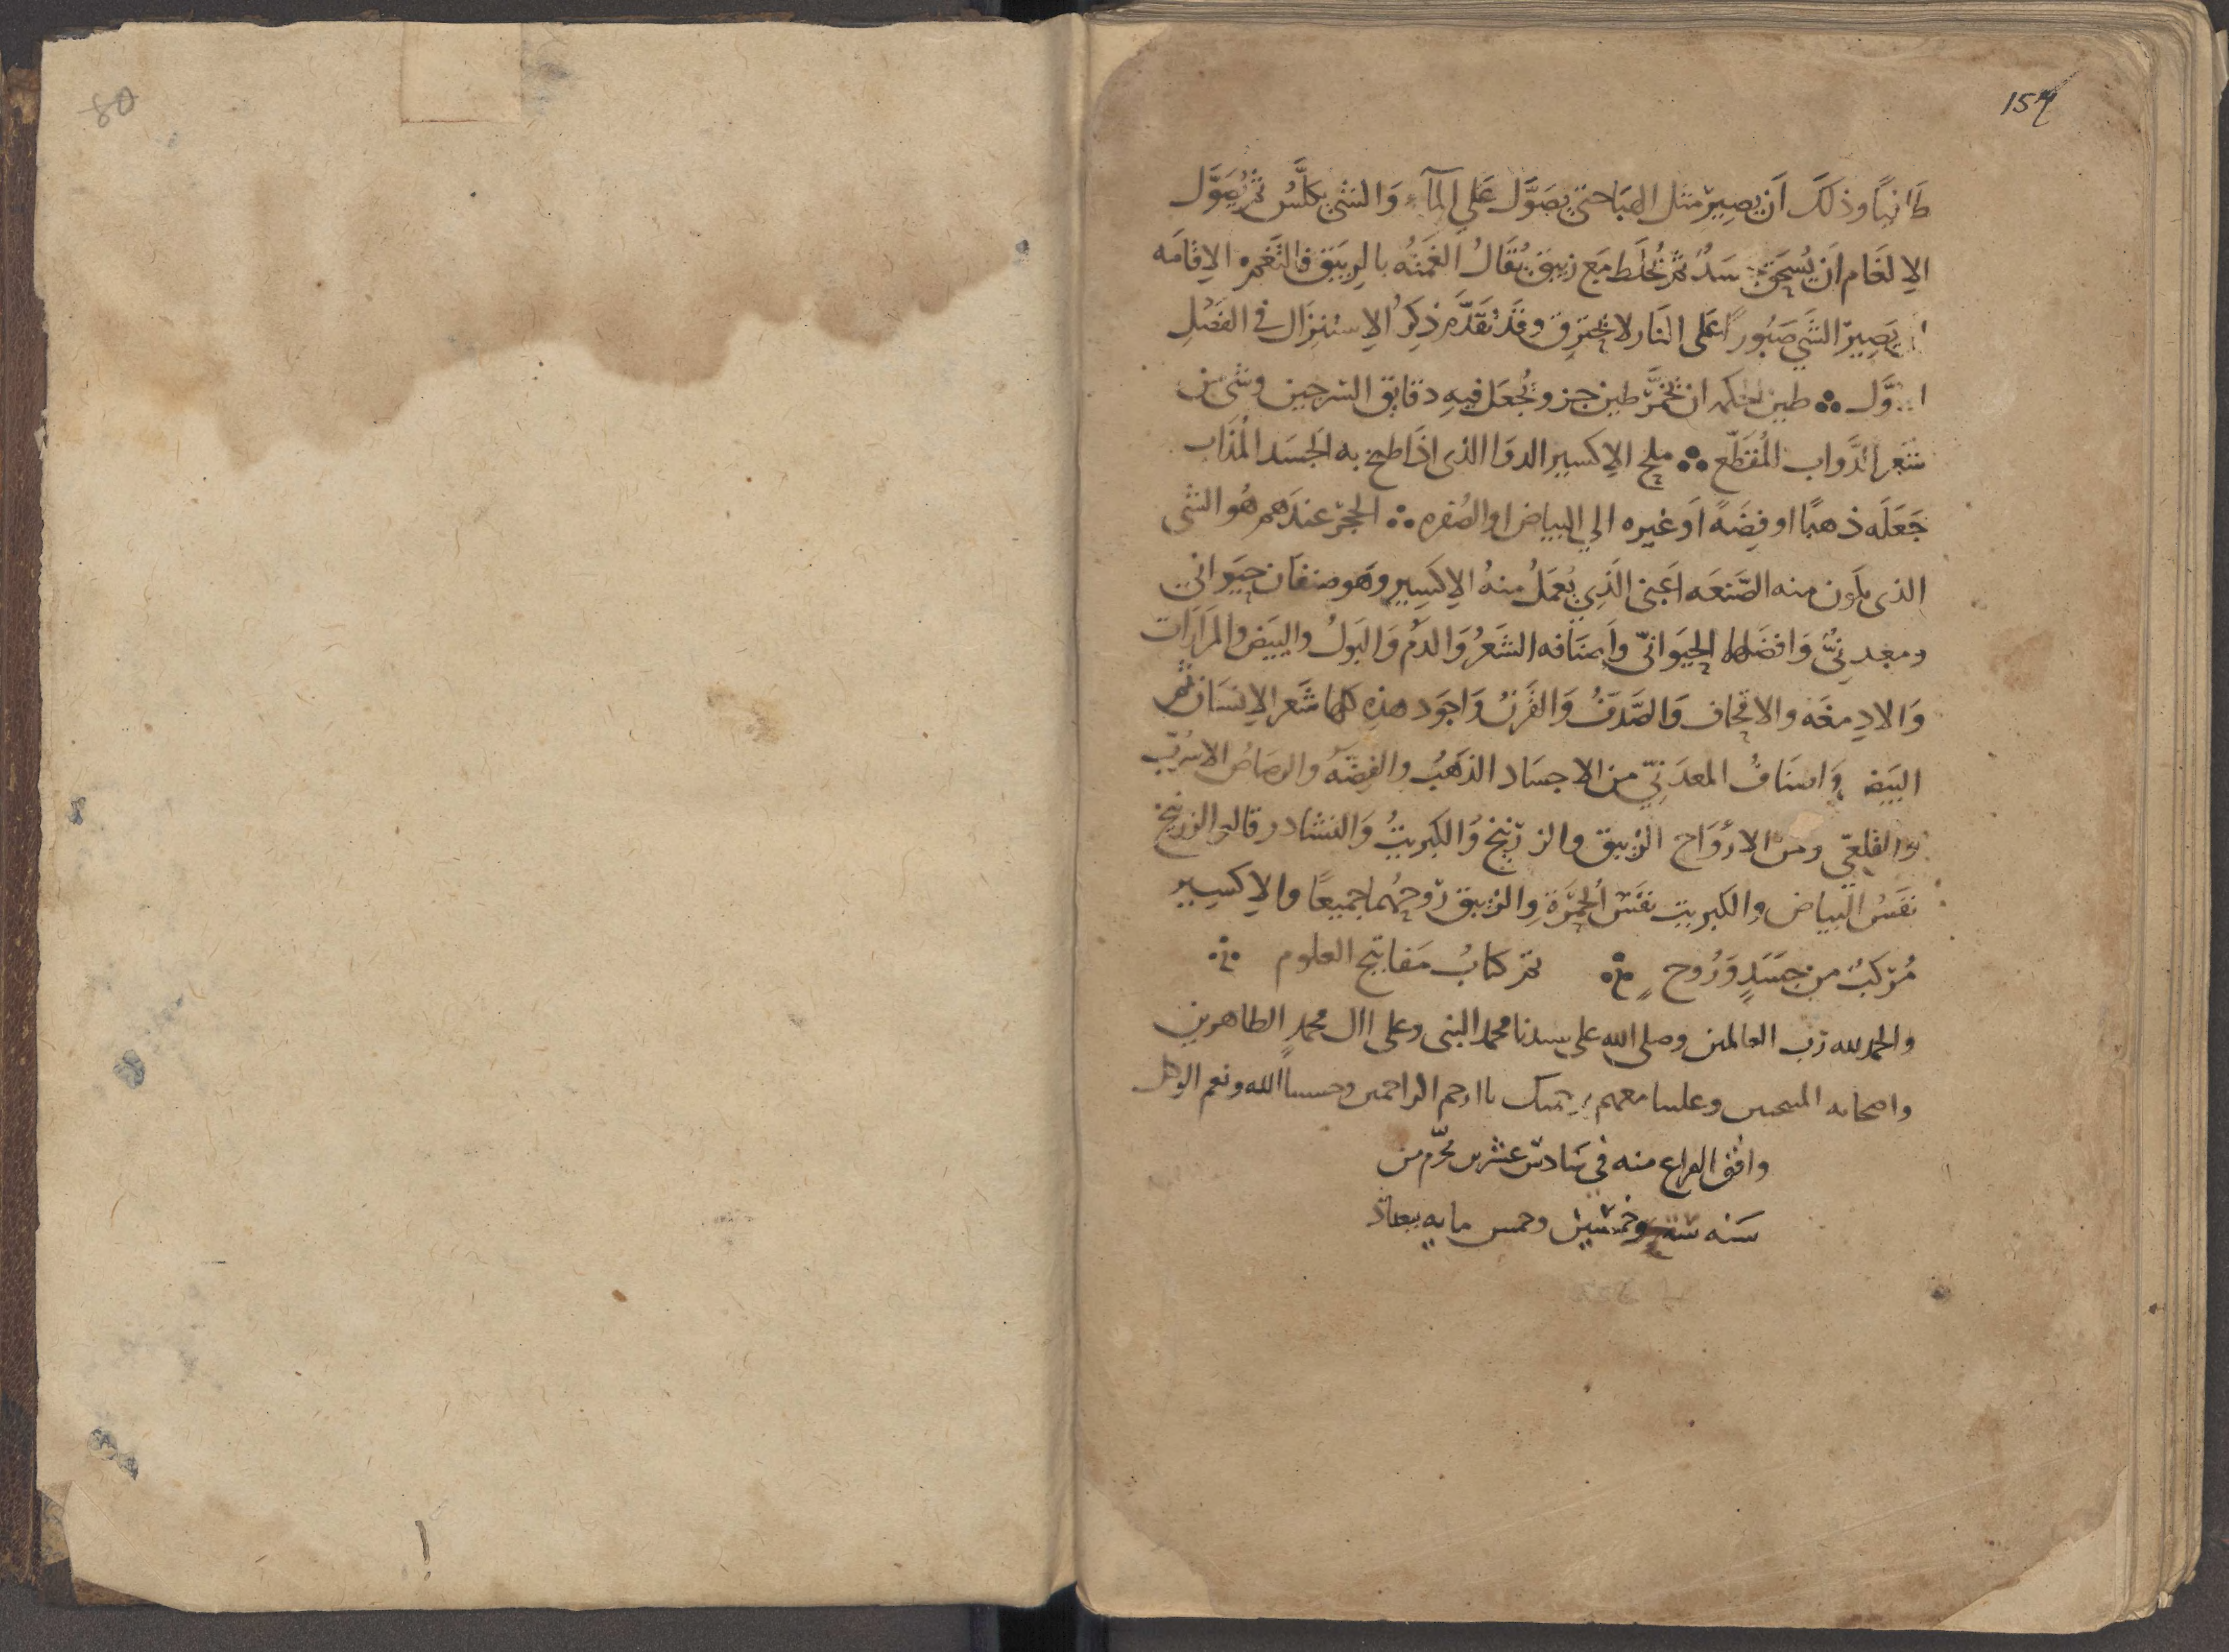 80
159
طافيًا وذلك أن يصير مثل الهبا حتى يصوّل على المآء والشي يكلّس ثم يُصَوّل
الإلغام ان يُسحق جسدٌ ثم يُخلط مع زيبق يُقالُ ألغمته بالزيبق فالتغم الإقامه
ان يصير الشي صبورًا على النار لا يحترق وقد تقدّم ذكرُ الاستنزال في الفصل
الاوّل طين الحكمه ان يُخمّر طين حر ويُجعل فيه دقايق السرجين وشي من
شعر الدّواب المُقطّع ملح الإكسير الدوا الذي اذا طبخ به الجسد المُذاب
جَعَلَه ذهبًا او فِضّةً أو غيره إلي البياض او الصُفره الحجر عندهم هُو الشي
الذي يكون منه الصّنعَه أعني الَّذِي يُعمَلُ منهُ الإكسِير وهو صنفان حَيَواني
ومعدنيٌّ وافضلها الحيَوانيّ وأصنافه الشَعرُ وَالدَمُ وَالبَولُ والبيَض والمَرَارَات
وَالادِمغَه والاقحاف وَالصَّدَفُ وَالقَرنُ وَاجوَد هذه كلها شَعر الإنسان ثم
البيَض وَاصنَافُ المعدَنيّ من الاجسَاد الذهَبُ والفِضّهُ والرصاصُ الاسُربّ
والقلعيّ ومن الارْوَاح الزيبق والزرنيخ وَالكبريتُ وَالنشادر قالوا الزرنيخ
نفسُ البياض والكبريت نفسُ الحُمرَةِ والزيبق رُوحهُما جميعًا والإكسِير
مُركبٌ من جسَدٍ وَرُوحٍ تم كتابُ مَفاتيح العلوم
والحمد لله رَب العالمين وصلى الله على سيدنا محمد النبي وعلى ال محمدٍ الطاهرين
واصحابه المنتجبين وعلينا معهم برحمتك يا ارحم الراحمين وحسبنا الله ونعم الوكيل
وافق الفراغ منه في سَادسَ عشرين محرّم من
سَنه وخمسين وخمس مايه